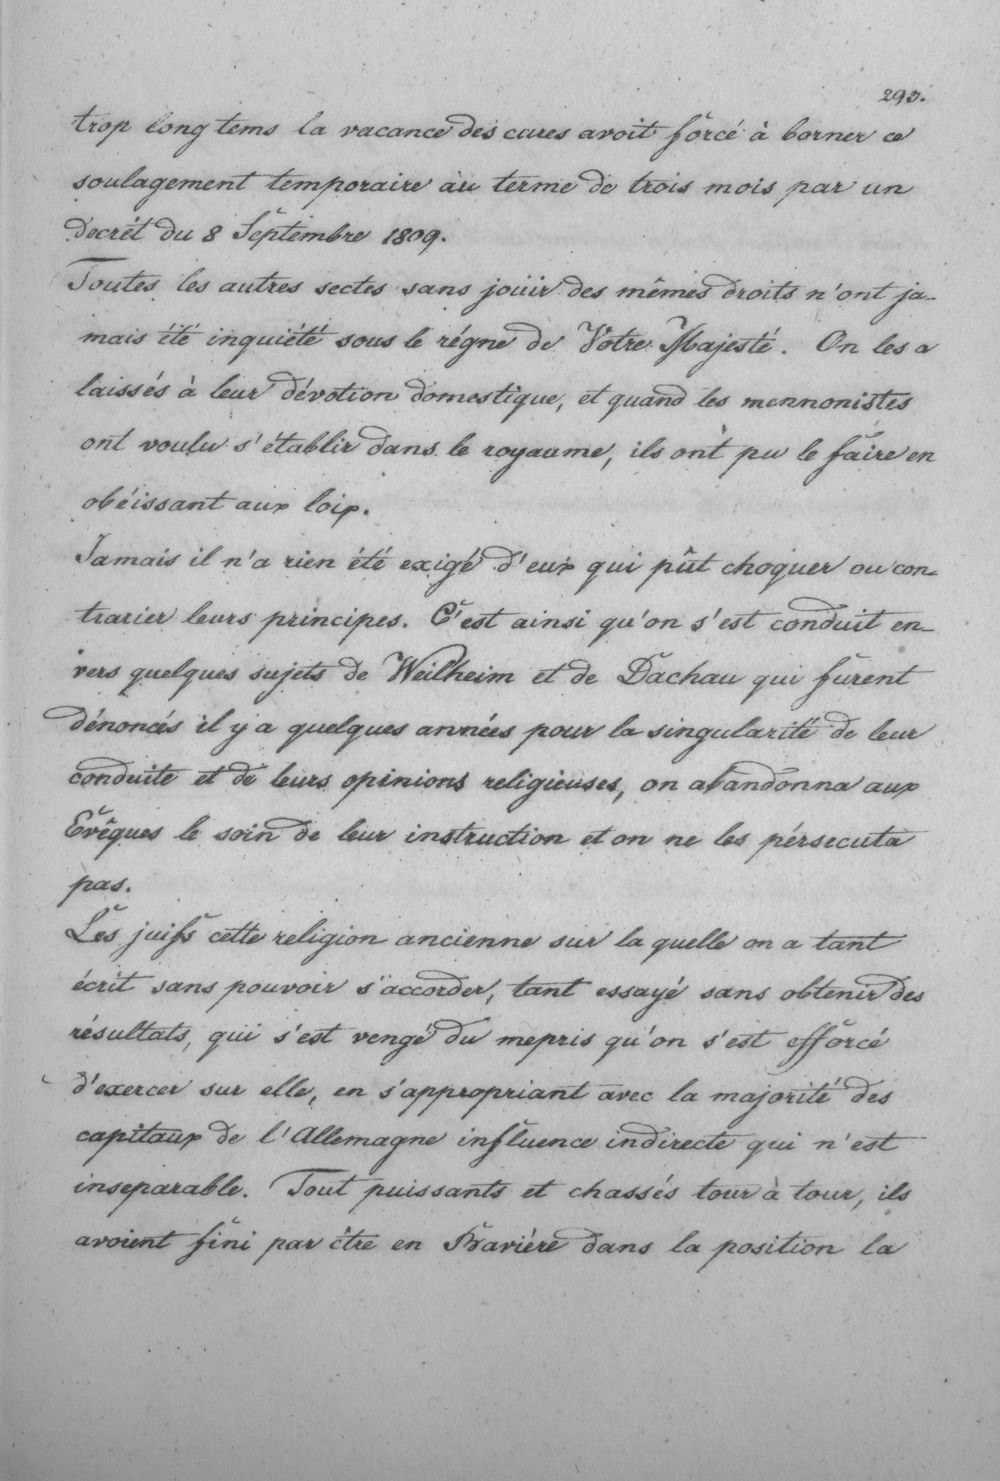 293.
trop long tems la vacance des cures avoit forcé à borner ce
soulagement temporaire au terme de trois mois par un
Decrét du 8 Septembre 1809.
Toutes les autres sectes sans joüir des mêmes droits n'ont ja-
mais été inquiété sous le régne de Vôtre Majesté. On les a
laissés à leur dévotion domestique, et quand les mennonistes
ont voulu s'établir dans le royaume, ils ont pu le faire en
obéissant aux loix.
Jamais il n'a rien été exigé d'eux qui pût choquer ou con-
trarier leurs principes. C'est ainsi qu'on s'est conduit en-
vers quelques sujets de Weilheim et de Dachau qui furent
dénoncés il y a quelques années pour la singularité de leur
conduite et de leurs opinions religieuses, on abandonna aux
Evêques le soin de leur instruction et on ne les pérsecuta
pas.
Les juifs cette religion ancienne sur la quelle on a tant
écrit sans pouvoir s'accorder, tant essayé sans obtenir des
résultats, qui s'est vengé du mepris qu'on s'est efforcé
d'exercer sur elle, en s'appropriant avec la majorité des
capitaux de l'Allemagne influence indirecte qui n'est
inseparable. Tout puissants et chassés tour à tour, ils
avoient fini par être en Bavière dans la position la